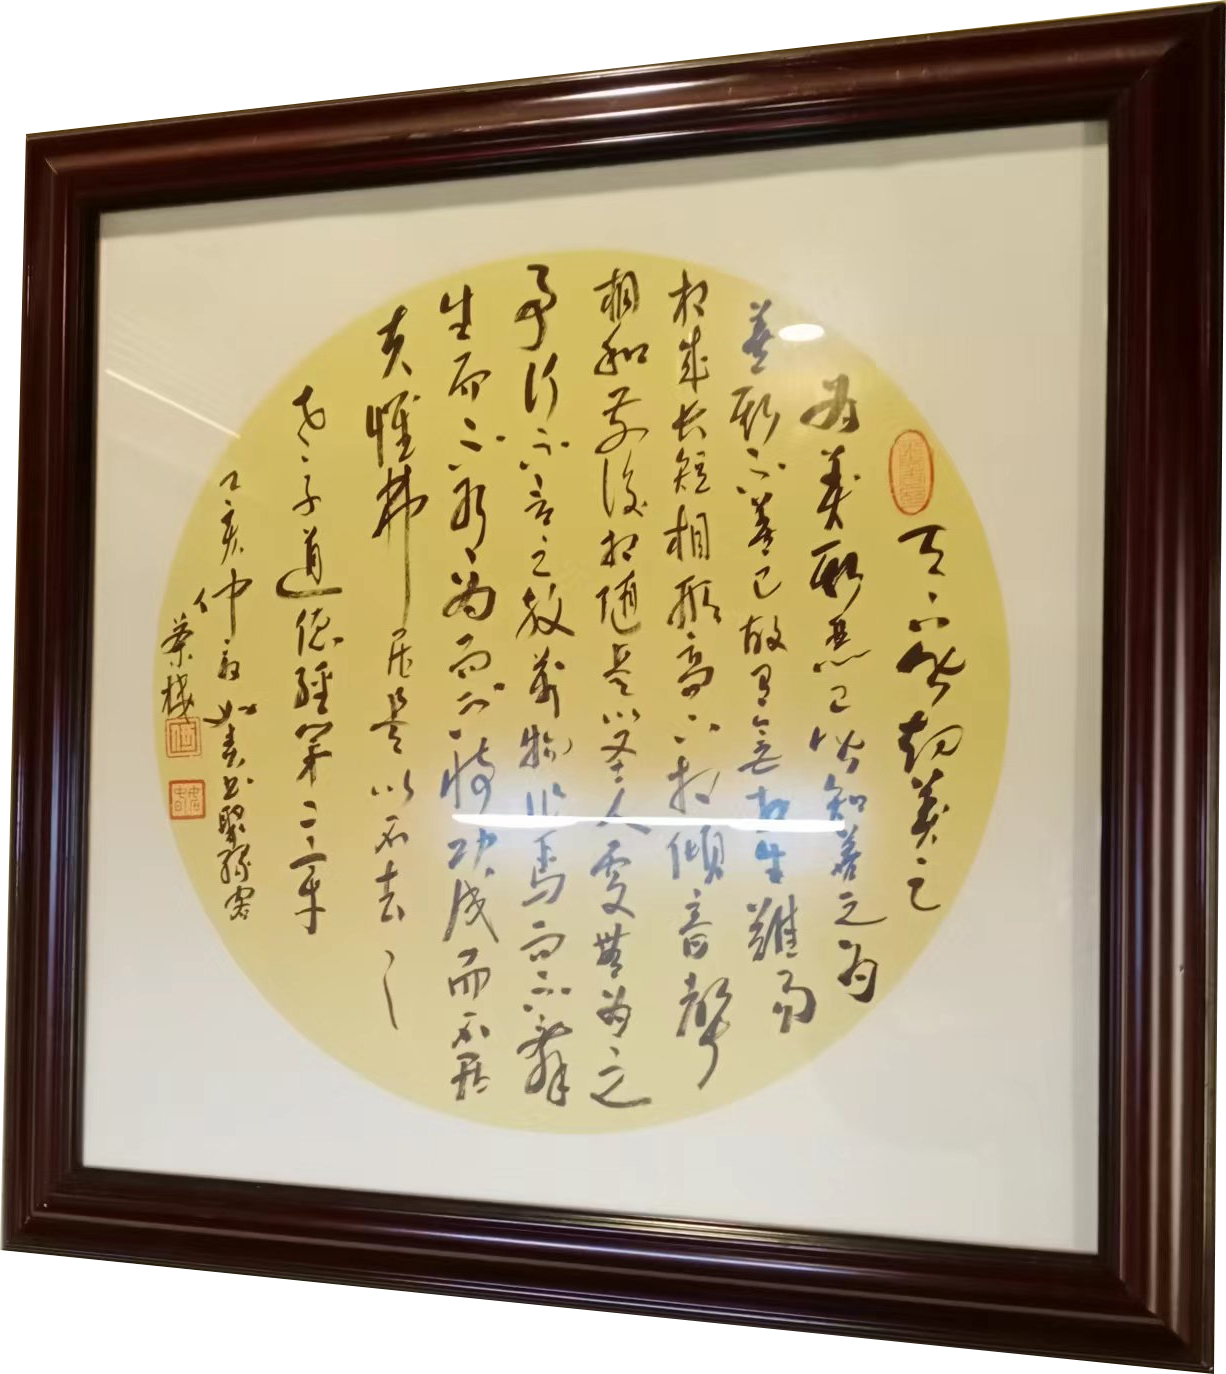 天下皆知美之
为美斯恶已皆知善之为
善斯不善已故有无相生難易
相成长短相形高下相倾音聲
相和前後相随是以圣人處無为之
事行不言之教萬物作焉而不辭
生而不有为而不恃功成而不居
夫惟弗居是以不去
老子道德經第二章
亥仲